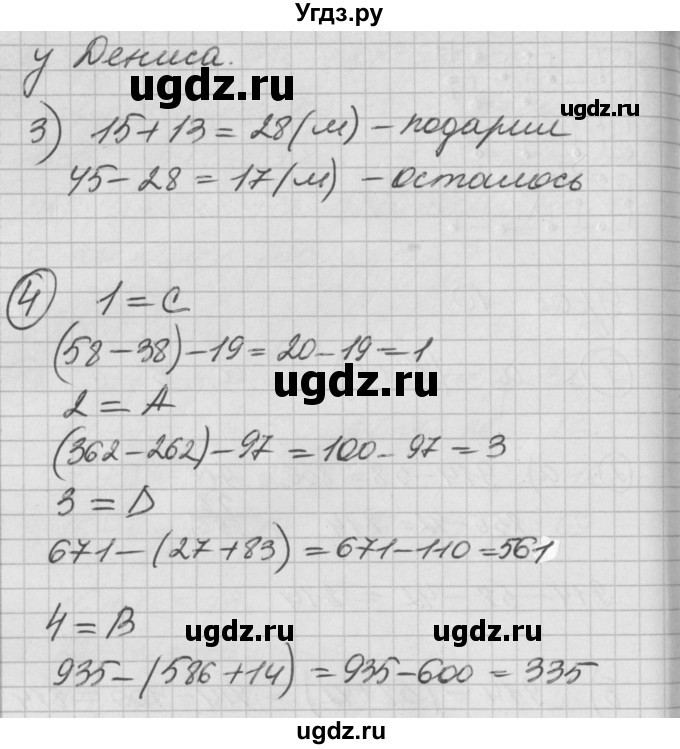 Угдз.ру
у Дениса.
ugdz.ru
ugdz.ru
3) 15+13=28(м) – подарил
45–28=17(м) – осталось
4 1=C
(58–38)–19=20–19=1
ugdz.ru
2=A
(362–262)–97=100–97=3
3=D
671–(27+83)=671–110=561
4=B
ugdz.ru ugdz.ru
935–(586+14)=935–600=335
ugdz.ru